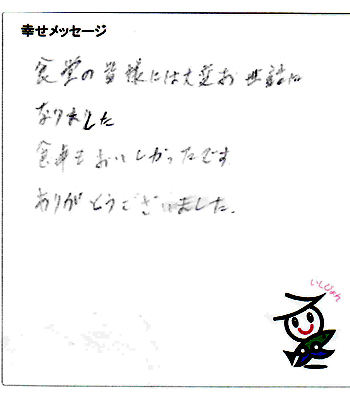 幸せメッセージ
食堂の皆様には大変お世話に
なりました
食事もおいしかったです
ありがとうございました。
いしぴょん